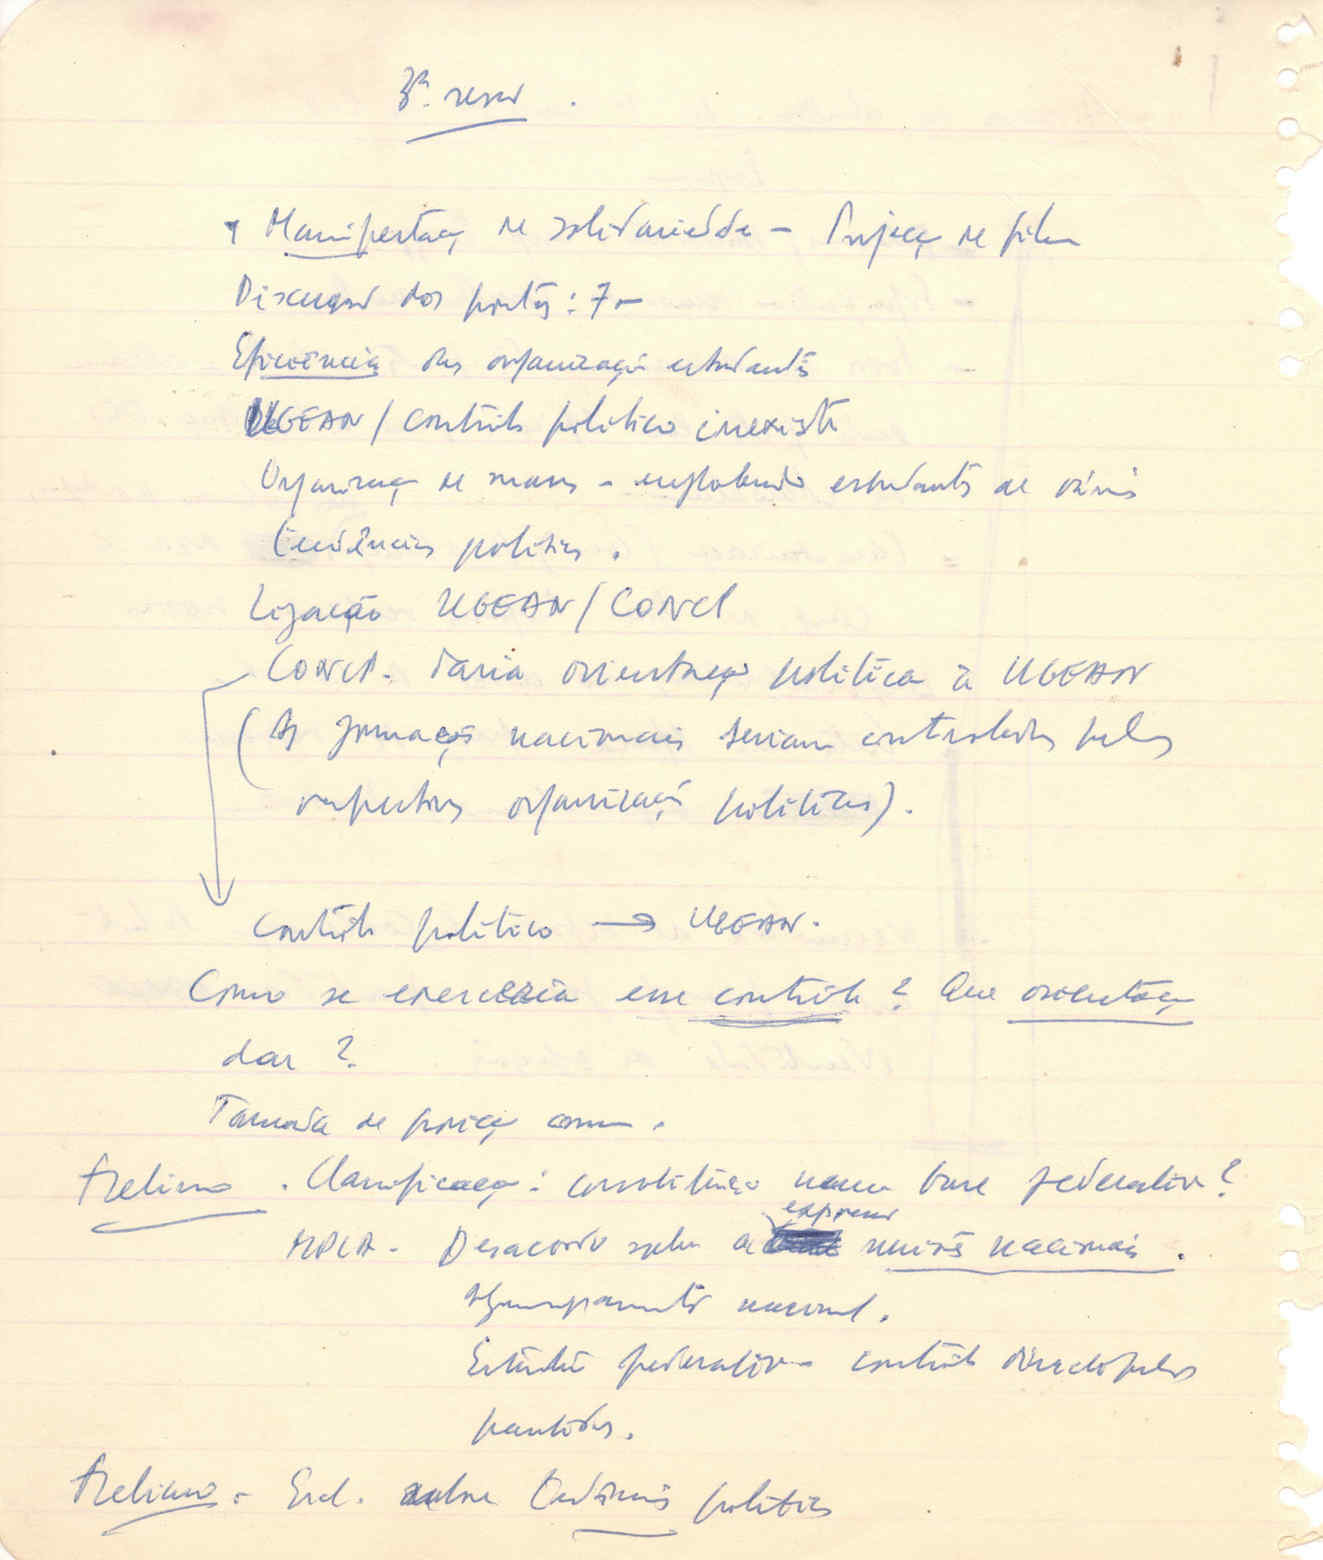 3ª. sessão.
Manifestação de solidariedade - Projecção de filme
Discussão dos pontos: 7 -
Eficiência das organizações estudantis
UGEAN / contrôle político inexistente
Organização de massas - englobando estudantes de várias
tendências políticas.
Ligação UGEAN / CONCP
CONCP. daria orientação política à UGEAN
(As formações nacionais seriam controladas pelas
respectivas organizações políticas).
Contrôle político → UGEAN.
Como se exerceria esse contrôle? Que orientação
dar?
Tomada de posição comum.
Frelimo. Classificação: constituição numa base federativa?
MPLA - Desacordo sobre a expressão uniões nacionais.
Agrupamento nacional.
Estrutura federativa - contrôle directo pelos
partidos.
Frelimo - Escl. sobre tendências políticas